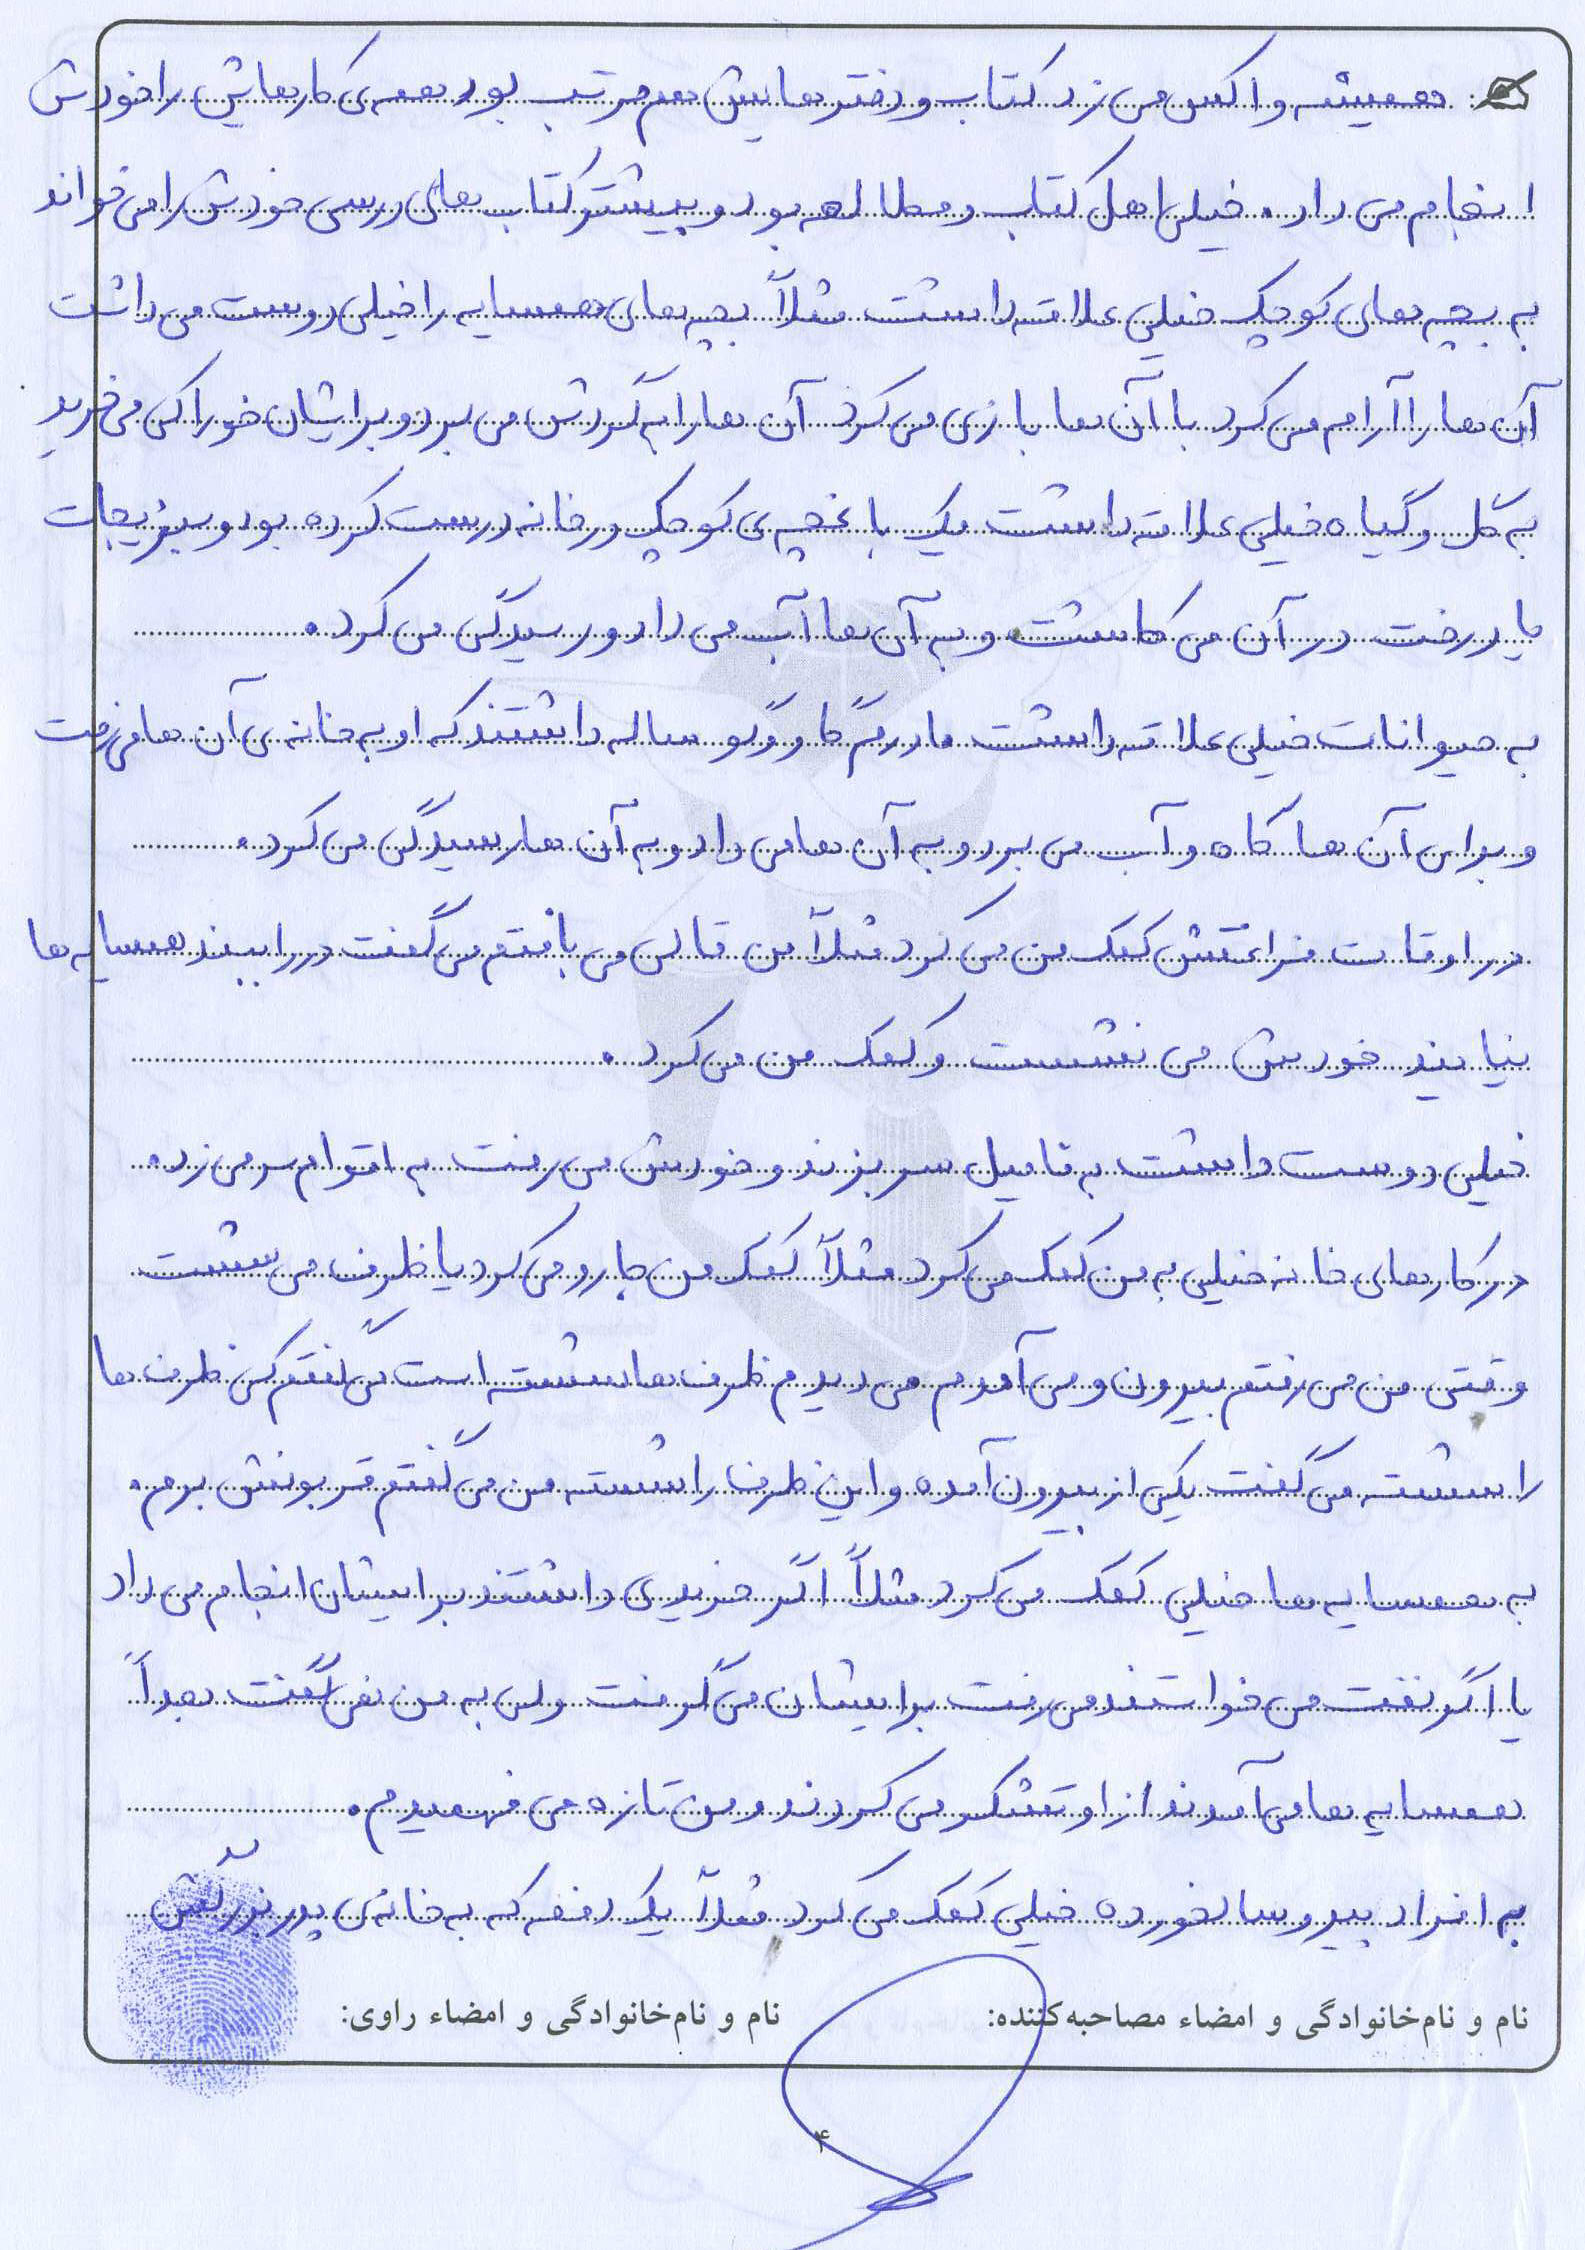 همیشه واکس می زد کتاب و دفتر هایش هم مرتب بود همه ی کارهایش را خودش
انجام می داد. خیلی اهل کتاب و مطالعه بود و بیشتر کتاب های درسی خودش را می خواند
به بچه های کوچک خیلی علاقه داشت مثلاً بچه های همسایه را خیلی دوست می داشت
آن ها را آرام می کرد با آن ها بازی می کرد آن ها را به گردش می برد و برایشان خوراکی می خرید
به گل و گیاه خیلی علاقه داشت یک باغچه ی کوچک در خانه درست کرده بود و سبزیجات
یا درخت در آن می کاشت و به آن ها آب می داد و رسیدگی می کرد.
به حیوانات خیلی علاقه داشت مادرم گاو و گوساله داشتند که او به خانه ی آن ها می رفت
و برای آن ها کاه و آب می برد و به آن ها می داد و به آن ها رسیدگی می کرد.
در اوقات فراغتش کمک من می کرد مثلاً من قالی می بافتم می گفت در را ببند همسایه ها
نیایند خودش می نشست و کمک من می کرد.
خیلی دوست داشت به فامیل سر بزند و خودش می رفت به اقوام سر می زد.
در کارهای خانه خیلی به من کمک می کرد مثلاً کمک من جارو می کرد یا ظرف می شست
وقتی من می رفتم بیرون و می آمدم می دیدم ظرف ها شسته است می گفتم کی ظرف ها
را شسته می گفت یکی از بیرون آمده و این ظرف را شسته من می گفتم قربونش برم.
به همسایه ها خیلی کمک می کرد مثلاً اگر خریدی داشتند برایشان انجام می داد
یا اگر نفت می خواستند می رفت برایشان می گرفت ولی به من نمی گفت بعداً
همسایه ها می آمدند از او تشکر می کردند و من تازه می فهمیدم.
به افراد پیر و سالخورده خیلی کمک می کرد مثلاً یک دفعه که به خانه ی پدربزرگش
نام و نام‌خانوادگی و امضاء مصاحبه‌کننده: نام و نام‌خانوادگی و امضاء راوی:
۴